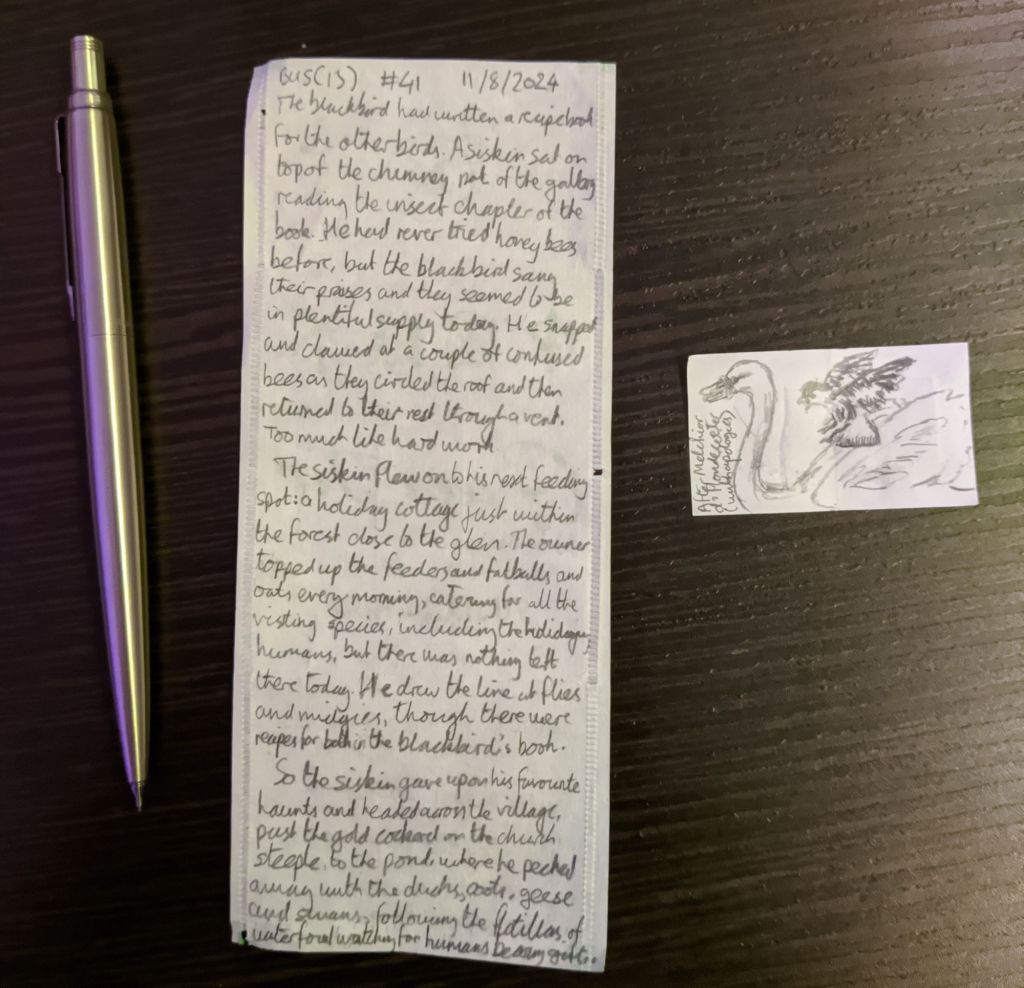 BUS(13) #41 11/8/2024
The blackbird had written a recipe book
for the other birds. A siskin sat on
top of the chimney pot of the gallery
reading the insect chapter of the
book. He had never tried honey bees
before, but the blackbird sang
their praises and they seemed to be
in plentiful supply today. He snapped
and clawed at a couple of confused
bees as they circled the roof and then
returned to their nest through a vent.
Too much like hard work.
The siskin flew on to his next feeding
spot: a holiday cottage just within
the forest close to the glen. The owner
topped up the feeders and fatballs and
oats every morning, catering for all the
visiting species, including the holidaying
humans, but there was nothing left
there today. He drew the line at flies
and midgies, though there were
recipes for both in the blackbird's book.
So the siskin gave up on his favourite
haunts and headed across the village,
past the gold cockerel on the church
steeple, to the pond, where he pecked
away with the ducks, coots, geese
and swans, following the flotillas of
waterfowl watching for humans bearing gifts.
After Melchior
d'Hondecoeter
(with apologies)